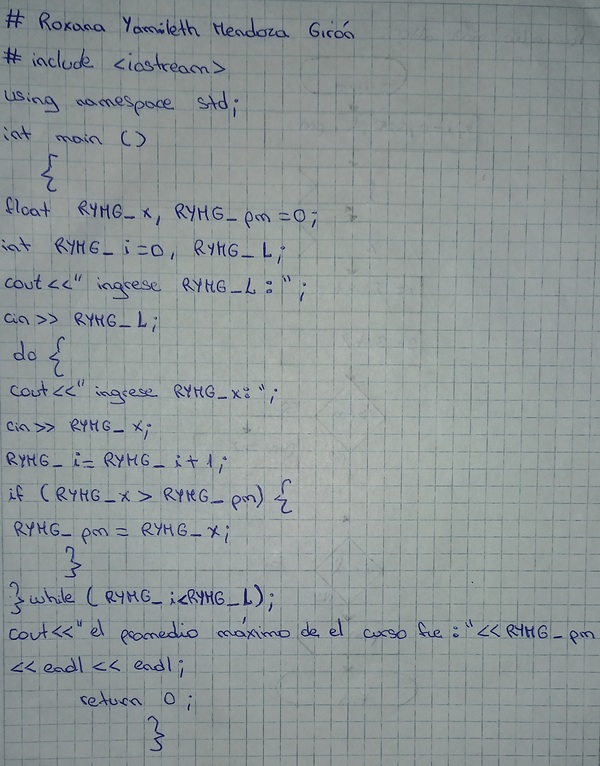 # Roxana Yamileth Mendoza Girón
# include <iostream>
using namespace std;
int main ()
{
float RYMG_x, RYMG_pm=0;
int RYMG_i=0, RYMG_L;
cout<<" ingrese RYMG_L : ";
cin>> RYMG_L;
do {
cout<<" ingrese RYMG_x: ";
cin>> RYMG_x;
RYMG_i= RYMG_i+1;
if (RYMG_x > RYMG_pm) {
RYMG_pm = RYMG_x;
}
} while ( RYMG_i<RYMG_L);
cout<<"el promedio máximo de el curso fue : "<< RYMG_pm
<< endl << endl;
return 0;
}